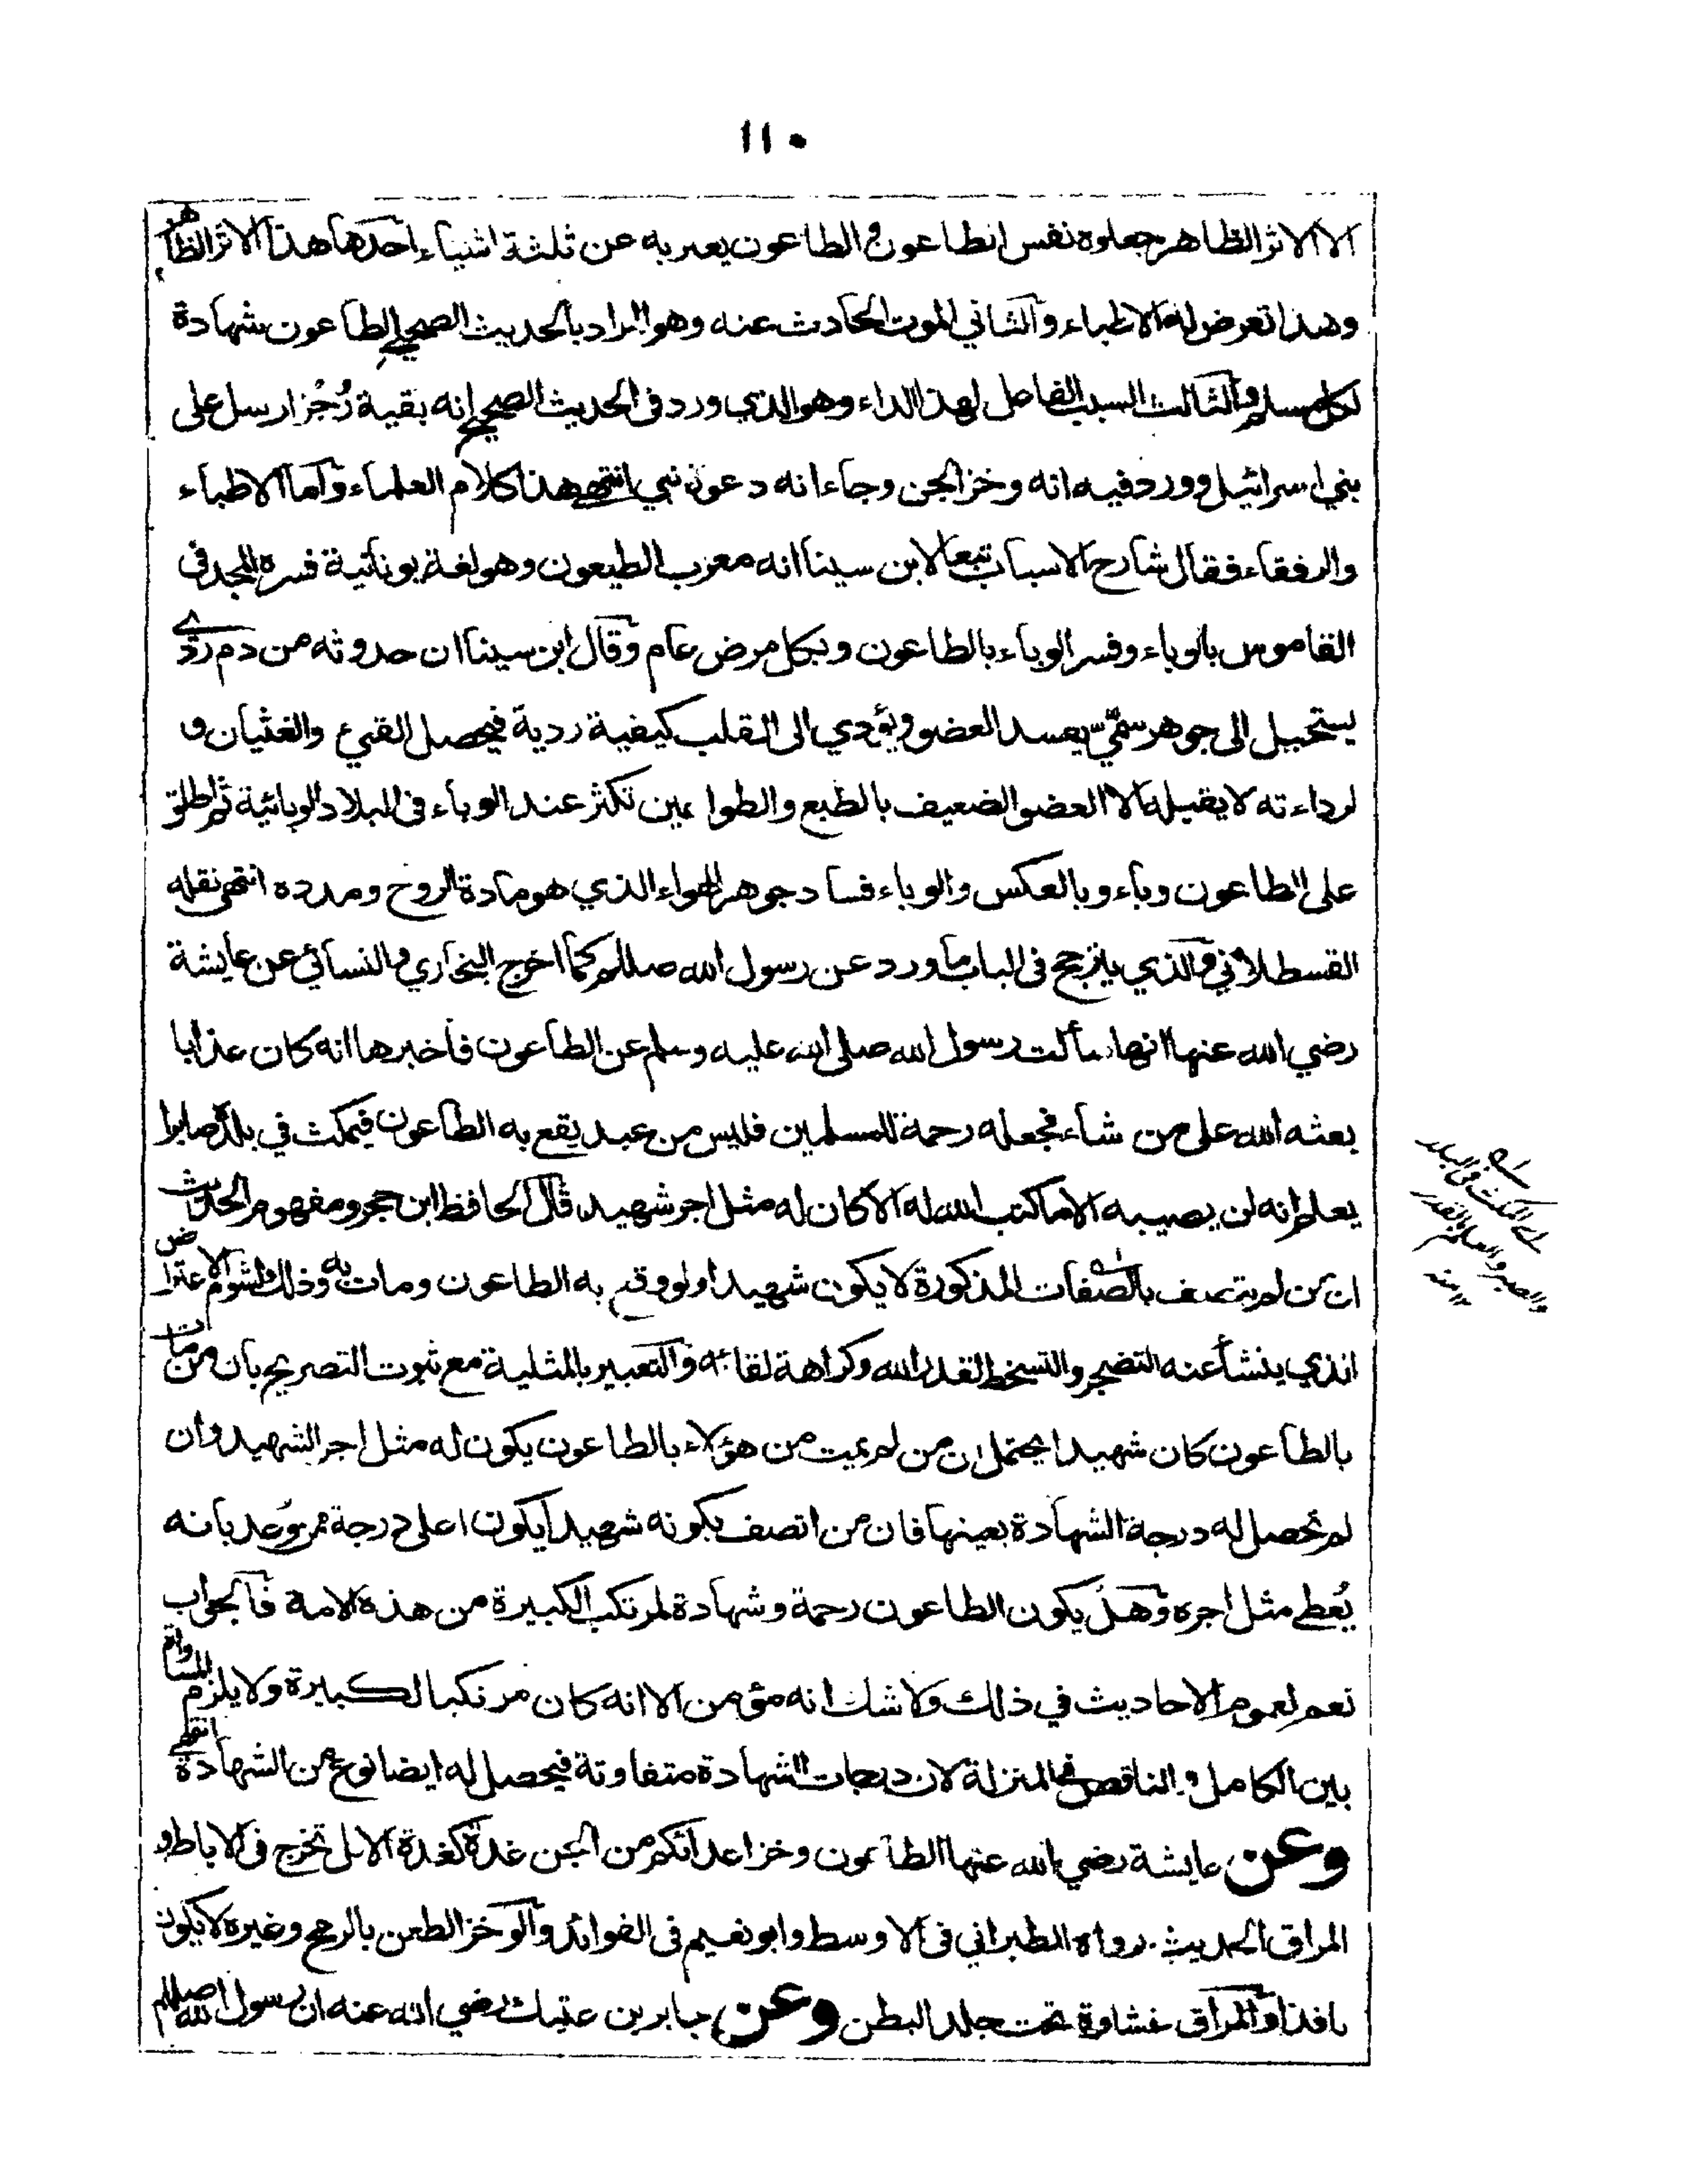 ١١٠
الا الاثر الظاهر جعلوه نفس الطاعون والطاعون يعبر به عن ثلثة اشياء احدها هذا الاثر الظاهر
وهذا تعرض له الاطباء والثاني الموت الحادث عنه وهو المراد بالحديث الصحيح الطاعون شهادة
لكل مسلم والثالث السبب الفاعل لهذا الداء وهو الذي ورد فى الحديث الصحيح انه بقية رُجْز ارسل على
بني اسرائيل وورد فيه انه وخز الجن وجاء انه دعوة نبي انتهى هذا كلام العلماء واما الاطباء
والرفقاء فقال شارح الاسباب تبعا لابن سينا انه معرب الطيعون وهو لغة يونانية فسره المجد فى
القاموس بالوباء وفسر الوباء بالطاعون وبكل مرض عام وقال ابن سينا ان حدوثه من دم ردى
يستحيل الى جوهر سمّي يفسد العضو ويؤدي الى القلب كيفية ردية فيحصل القيء والغثيان و
لرداءته لا يقبله الا العضو الضعيف بالطبع والطواعين تكثر عند الوباء فى البلاد الوبائية ثم اطلق
على الطاعون وباء وبالعكس والوباء فساد جوهر الهواء الذي هو مادة الروح ومدده انتهى نقله
القسطلاني والذي يترجح فى الباب ما ورد عن رسول الله صللم كما اخرج البخاري والنسائي عن عايشة
رضي الله عنها انها سألت رسول الله صلى الله عليه وسلم عن الطاعون فاخبرها انه كان عذابا
بعثه الله على من شاء فجعله رحمة للمسلمين فليس من عبد يقع به الطاعون فيمكث في بلده صابرا
يعلم انه لن يصيبه الا ما كتب الله له الا كان له مثل اجر شهيد قال الحافظ ابن حجر ومفهوم الحديث
ان من لم يتصف بالصفات المذكورة لا يكون شهيدا ولو وقع به الطاعون ومات به وذلك لشوم الاعتراض
الذي ينشأ عنه التضجر والتسخط لقدر الله وكراهة لقائه والتعبير بالمثلية مع ثبوت التصريح بان من مات
بالطاعون كان شهيدا يحتمل ان من لم يمت من هؤلاء بالطاعون يكون له مثل اجر الشهيد وان
لم تحصل له درجة الشهادة بعينها فان من اتصف بكونه شهيدا يكون اعلى درجة ممن وُعد بانه
يُعطى مثل اجره وهل يكون الطاعون رحمة وشهادة لمرتكب الكبيرة من هذه الامة فالجواب
نعم لعموم الاحاديث في ذلك ولا شك انه مؤمن الا انه كان مرتكبا لكبيرة ولا يلزم المساواة
بين الكامل والناقص فى المنزلة لان درجات الشهادة متفاوتة فيحصل له ايضا نوع من الشهادة انتهى
وعن عايشة رضي الله عنها الطاعون وخز اعدائكم من الجن غدة كغدة الابل تخرج فى الاباط و
المراق الحديث رواه الطبراني فى الاوسط وابو نعيم فى الفوائد والوخز الطعن بالرمح وغيره لا يكون
نافذا والمراق غشاوة تحت جلد البطن وعن جابر بن عتيك رضي الله عنه ان رسول الله صللم
اي المكث فى البلد
والصبر والعلم بالقدر
١٢ منه